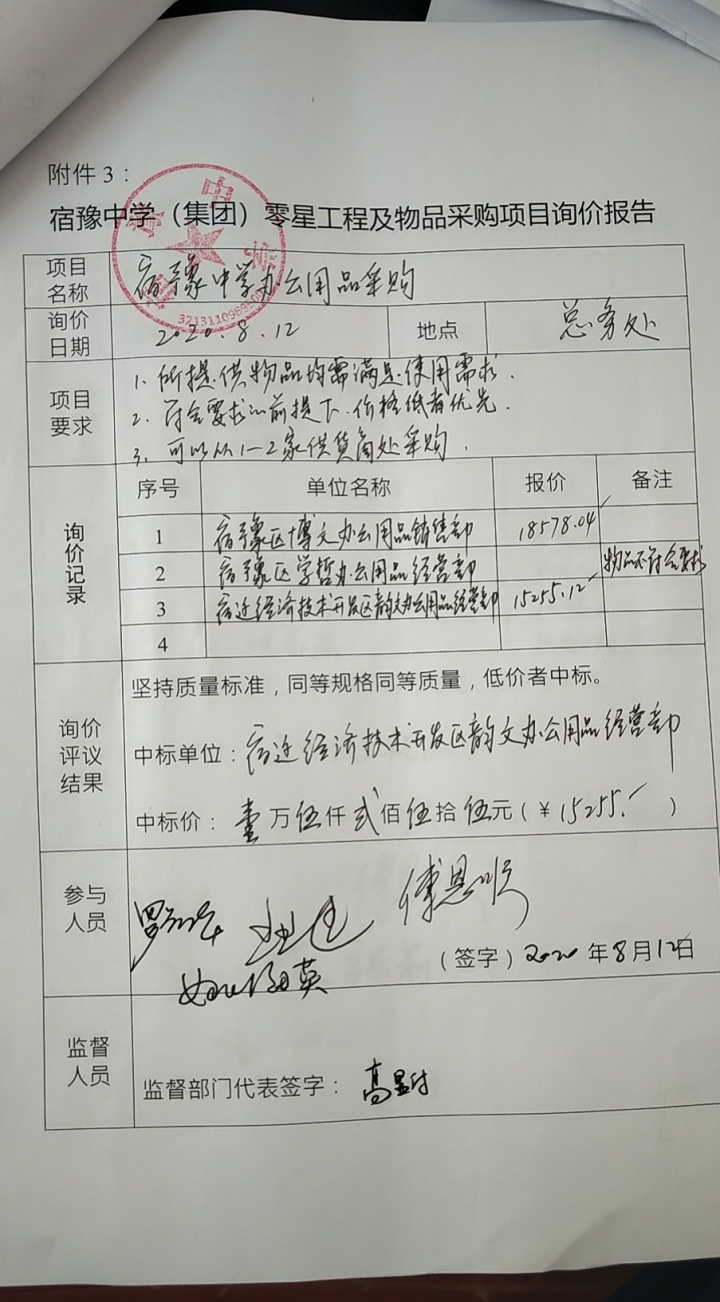 附件 3：
宿豫中学（集团）零星工程及物品采购项目询价报告
项目名称 宿豫中学办公用品采购
询价日期 2020.8.12 地点 总务处
项目要求
1、所提供物品均需满足使用需求.
2、符合要求的前提下.价格低者优先.
3、可以从1-2家供货商处采购.
询价记录
序号 单位名称 报价 备注
1 宿豫区博文办公用品销售部 18578.04
2 宿豫区学哲办公用品经营部 物品不符合要求
3 宿迁经济技术开发区韵文办公用品经营部 15255.12
4
询价评议结果
坚持质量标准，同等规格同等质量，低价者中标。
中标单位：宿迁经济技术开发区韵文办公用品经营部
中标价：壹万伍仟贰佰伍拾伍元（￥15255. ）
参与人员
傅恩顺
（签字）2020年8月12日
监督人员
监督部门代表签字：高